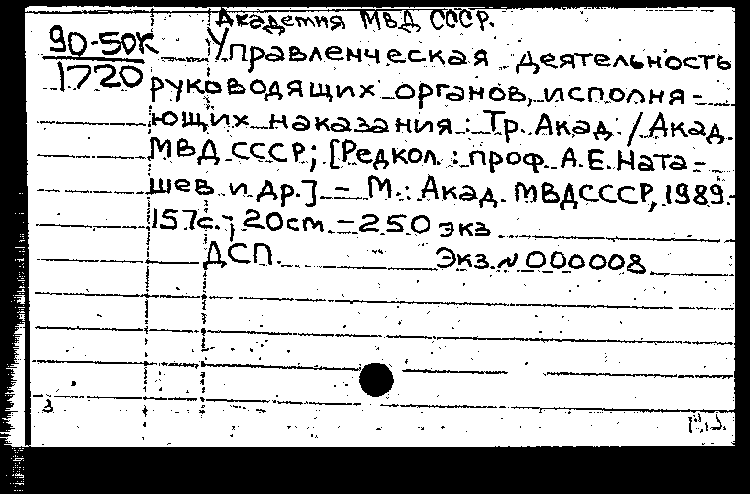 Академия МВД СССР.
90-50К Управленческая деятельность
1720 руководящих органов, исполня-
ющих наказания : Тр. Акад. / Акад.
МВД СССР; [Редкол. : проф. А.Е. Ната-
шев и др.] - М.: Акад. МВД СССР, 1989.-
157с.; 20cm. - 250 экз
ДСП. Экз. N 000008
3